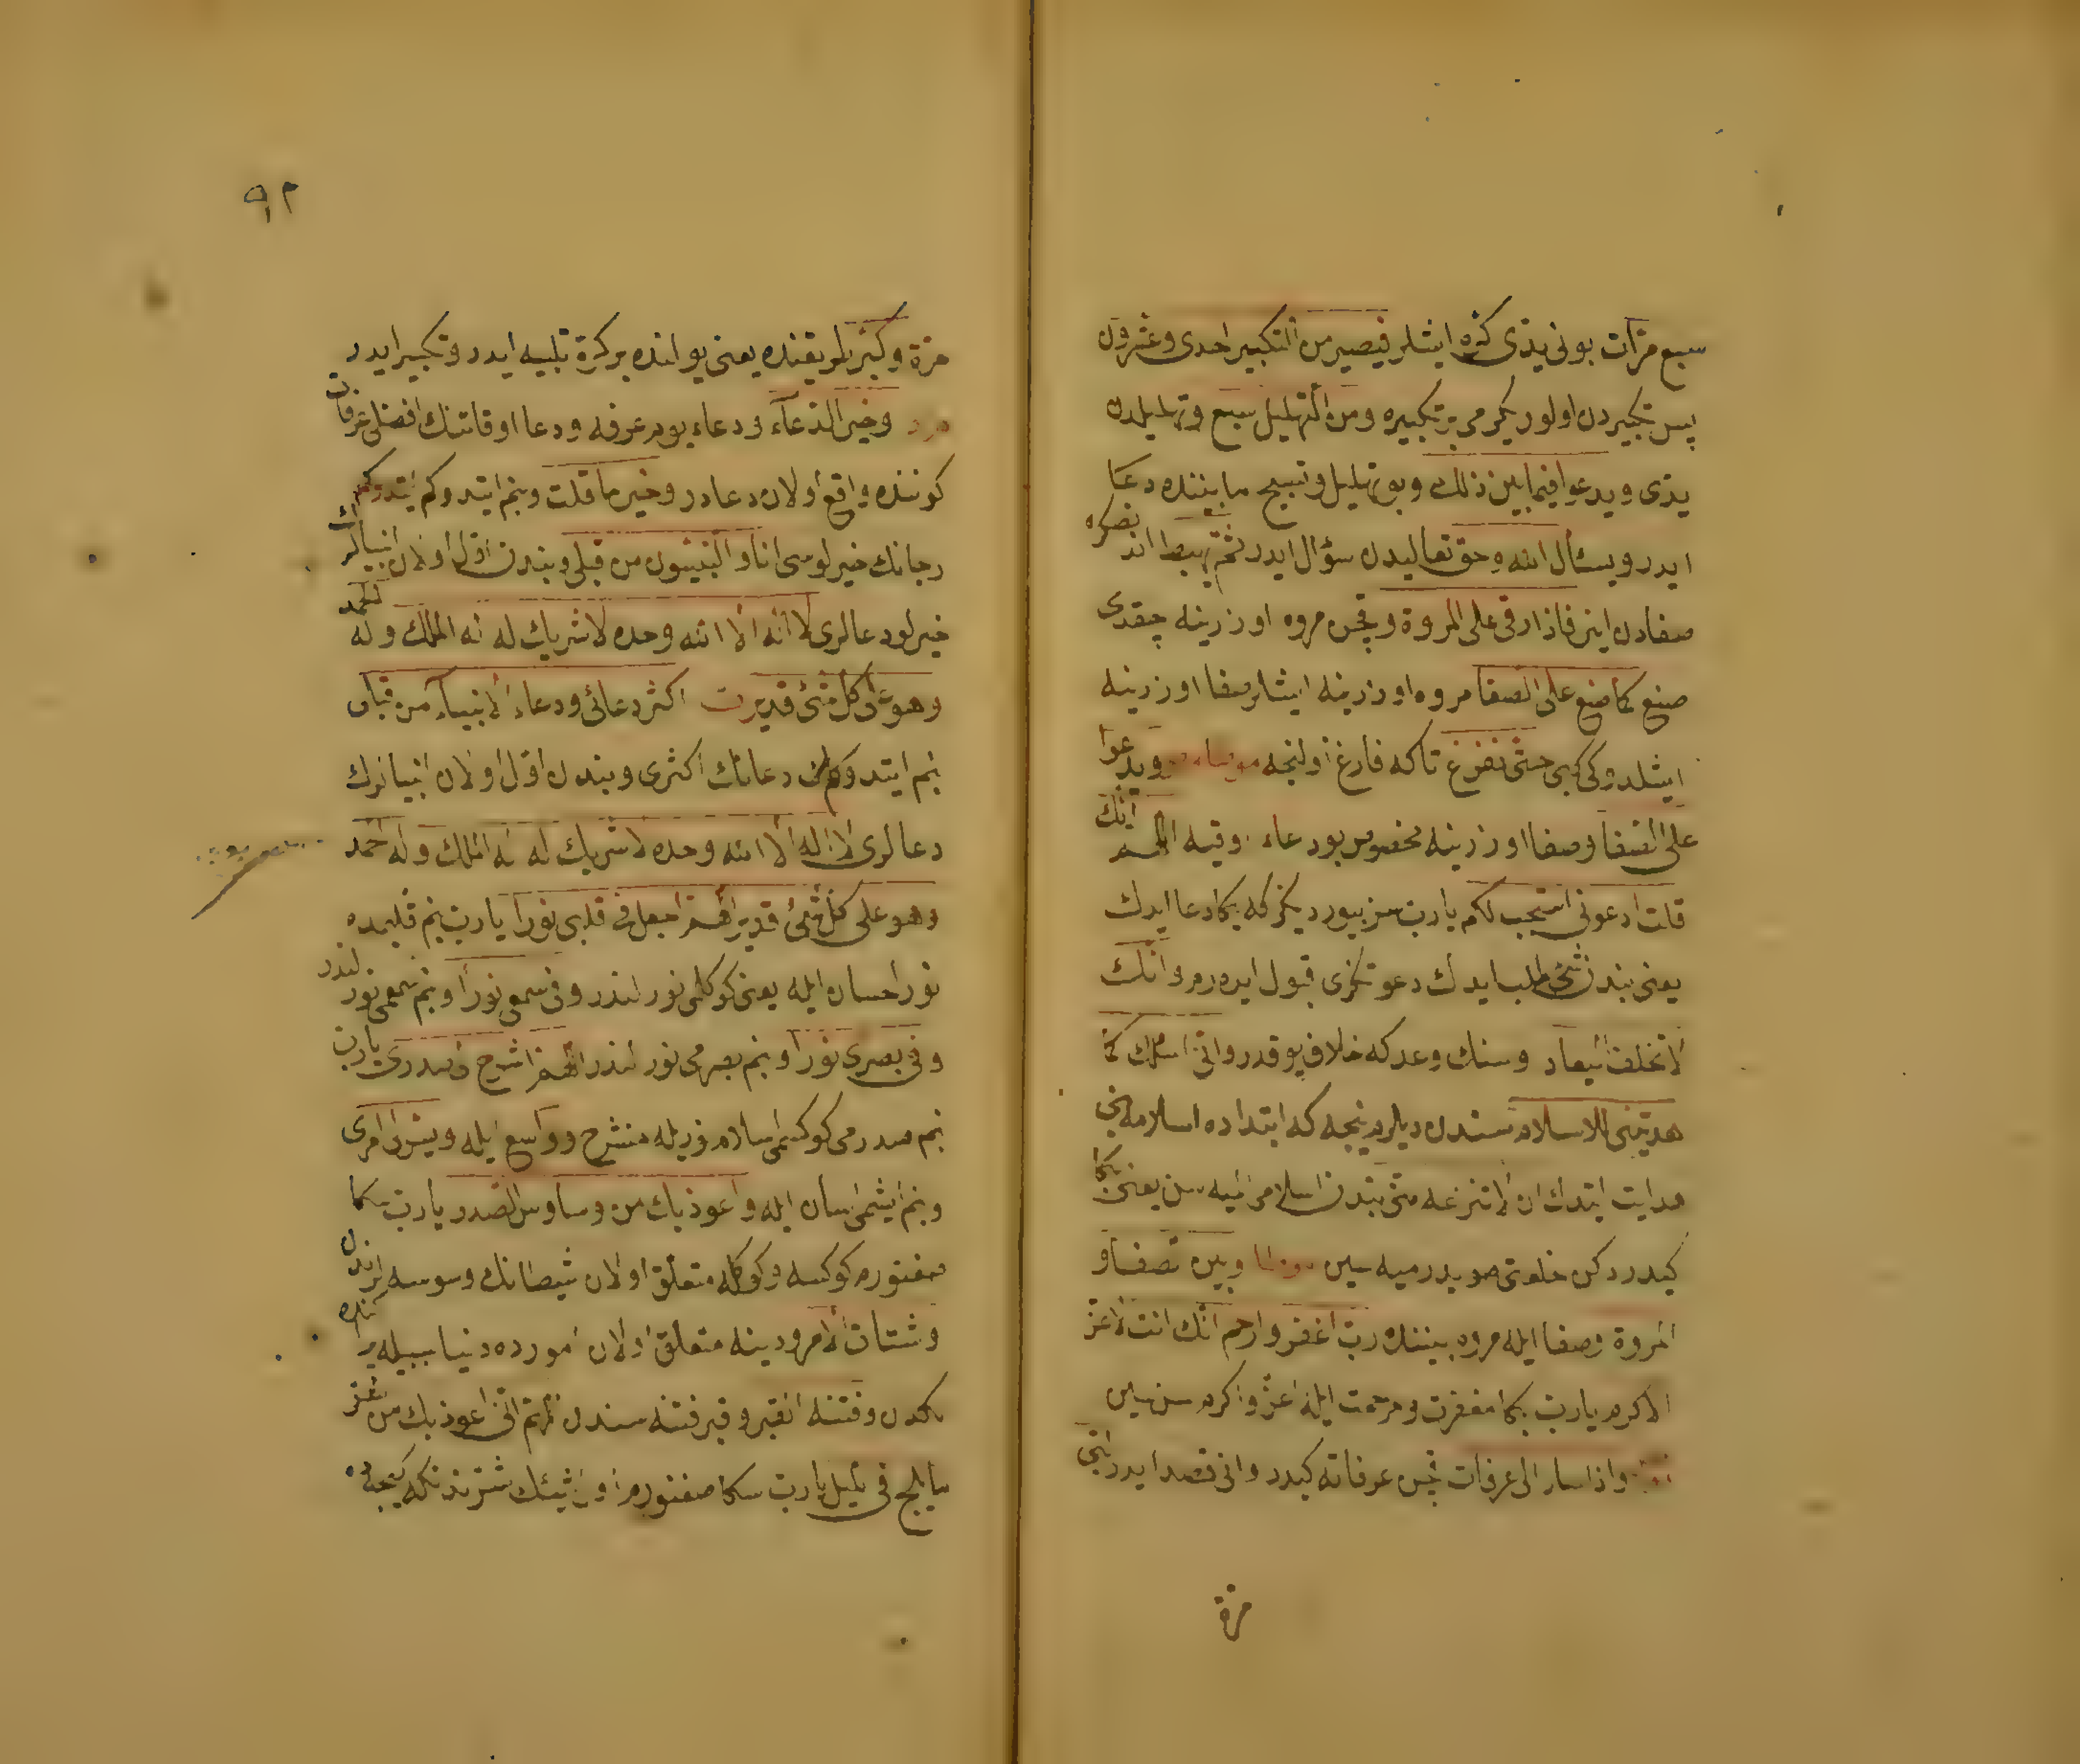 سبع مرّات بونی یدی کرّه ایشلر فیصیر من التکبیر احدی وعشرون
پس تکبیردن اولور یکرمی بر تکبیره ومن التهلیل سبع وتهلیلدن
یدی ویدعوا فیما بین ذلك وبو تهلیل وتسبیح مابیننده دعا
ایدر ویسأل الله وحق تعالیدن سؤال ایدر ثم یهبط اندنصکره
صفادن اینر فاذا رقی علی المروة وقچن مروه اوزرینه چقدی
صنع کما صنع علی الصفا مروه اوزرینه ایشلر صفا اوزرینه
ایشلدوکی کبی حتی یفرغ تاکه فارغ اولنجه ویدعوا
علی الصفا وصفا اوزرینه مخصوص بو دعاء اوقیه اللهم انك
قلت ادعونی استجب لکم یا رب سز بیوردیکز که بکا دعا ایدك
یعنی بندن شیء طلب ایدك دعوتکزی قبول ایدەرم وانك
لا تخلف المیعاد وسنك وعدکه خلاف یوقدر وانی اسئلك کما
هدیتنی للاسلام سندن دیلرم نیجه که ابتداده اسلامه بنی
هدایت ایتدك ان لا تنزعه منی بندن اسلامی
کیدردکن وبین الصفا و
المروة وصفا ایله مروه بیننده رب اغفر وارحم انك انت الاعز
الاکرم یا رب بکا مغفرت ومرحمت ایله اعز واکرم سن سین
واذا سار الی عرفات قچن عرفاته کیدر وانی قصد ایدر لبی
مرة
٩٢
مرة وکبر یلو یقنده یعنی یولنده بر کرة تلبیه ایدر وتکبیر ایدر
وخیر الدعآء ودعاء یوم عرفه ودعا اوقاتنك افضلی عرفات
کوننده واقع اولان دعادر وخیر ما قلت وبنم ایتدوکم
رجانك خیرلوسی انا والنبیون من قبلی وبندن اول اولان انبیالرك
خیرلو دعالری لا اله الا الله وحده لا شریك له له الملك وله الحمد
وهو علی کل شئ قدیر اکثر دعائی ودعاء الانبیآء من قبلی
بنم ایتدوکم دعانك اکثری وبندن اول اولان انبیانرك
دعالری لا اله الا الله وحده لا شریك له له الملك وله الحمد
وهو علی کل شئ قدیر اللهم اجعل فی قلبی نورا یا رب بنم قلبمده
نور احسان ایله یعنی کوکلمی نورلندر وفی سمعی نورا وبنم سمعمی نورلندر
وفی بصری نورا وبنم بصرمی نورلندر اللهم اشرح لی صدری یا رب
بنم صدرمی کوکسمی اسلام نوریله منشرح وواسع ایله ویسر لی امری
وبنم ایشمی اسان ایله واعوذ بك من وساوس الصدر یا رب سکا
صغنورم کوکسه وکوکله متعلق اولان شیطانك وسوسه لرندن
وشتات الامر ودینه متعلق اولان امورده دنیا سببیله
وفتنة القبر وقبر فتنه سندن اللهم انی اعوذ بك من شر
ما یلج فی اللیل یا رب سکا صغنورم اول شیئك شرندنکه کیجه ده